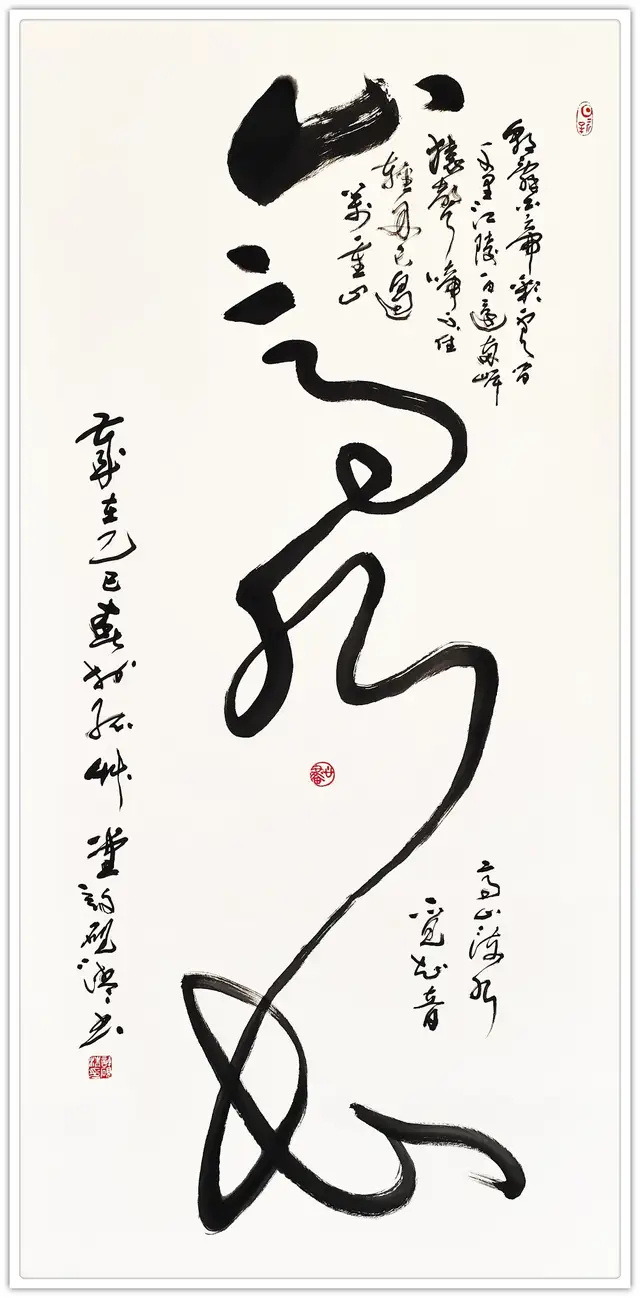 朝辭白帝彩雲間
千里江陵一日還兩岸
猿聲啼不住
輕舟已過
萬重山
山高水長
高山流水
覓知音
歲在乙巳春於艸堂書